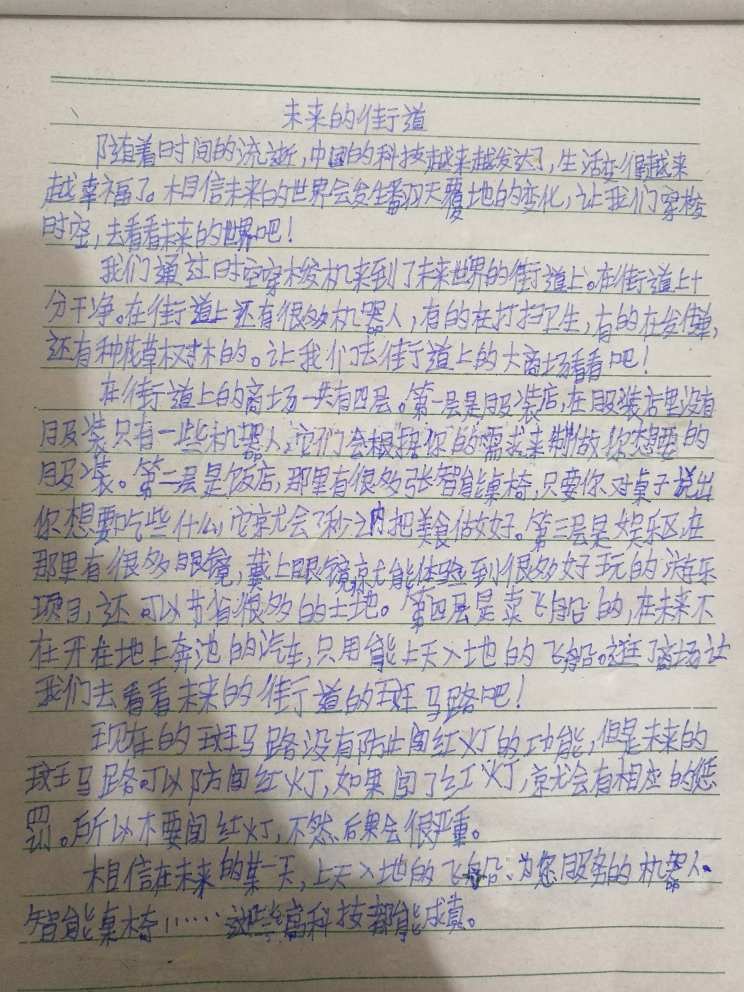 未来的街道
随着时间的流逝,中国的科技越来越发达了,生活也们越来
越幸福了。相信未来的世界会发生翻天覆地的变化,让我们穿梭
时空,去看看未来的世界吧!
我们通过时空穿梭机来到了未来世界的街道上。在街道上十
分干净。在街道上还有很多机器人,有的在打扫卫生,有的在发传单,
还有种花草树木的。让我们去街道上的大商场看看吧!
在街道上的商场一共有四层。第一层是服装店,在服装店里没有
服装只有一些机器人,它们会根据你的需求来制做你想要的
服装。第二层是饭店,那里有很多张智能桌椅,只要你对桌子说出
你想要吃些什么,它就会了秒之内把美食做好。第三层是娱乐区,在
那里有很多眼镜,戴上眼镜,就能体验到很多好玩的游乐
项目,还可以节省很多的土地。第四层是卖飞船的,在未来不
在开在地上奔池的汽车,只用能上天入地的飞船。逛了商场让
我们去看看未来的街道的斑马路吧!
现在的斑马路没有防止闯红灯的功能,但是未来的
斑马路可以防闯红灯,如果闯了红灯,就会有相应的惩
罚。所以不要闯红灯,不然后果会很严重。
相信在未来的某一天,上天入地的飞船、为您服务的机器人、
智能桌椅……这些高科技都能成真。